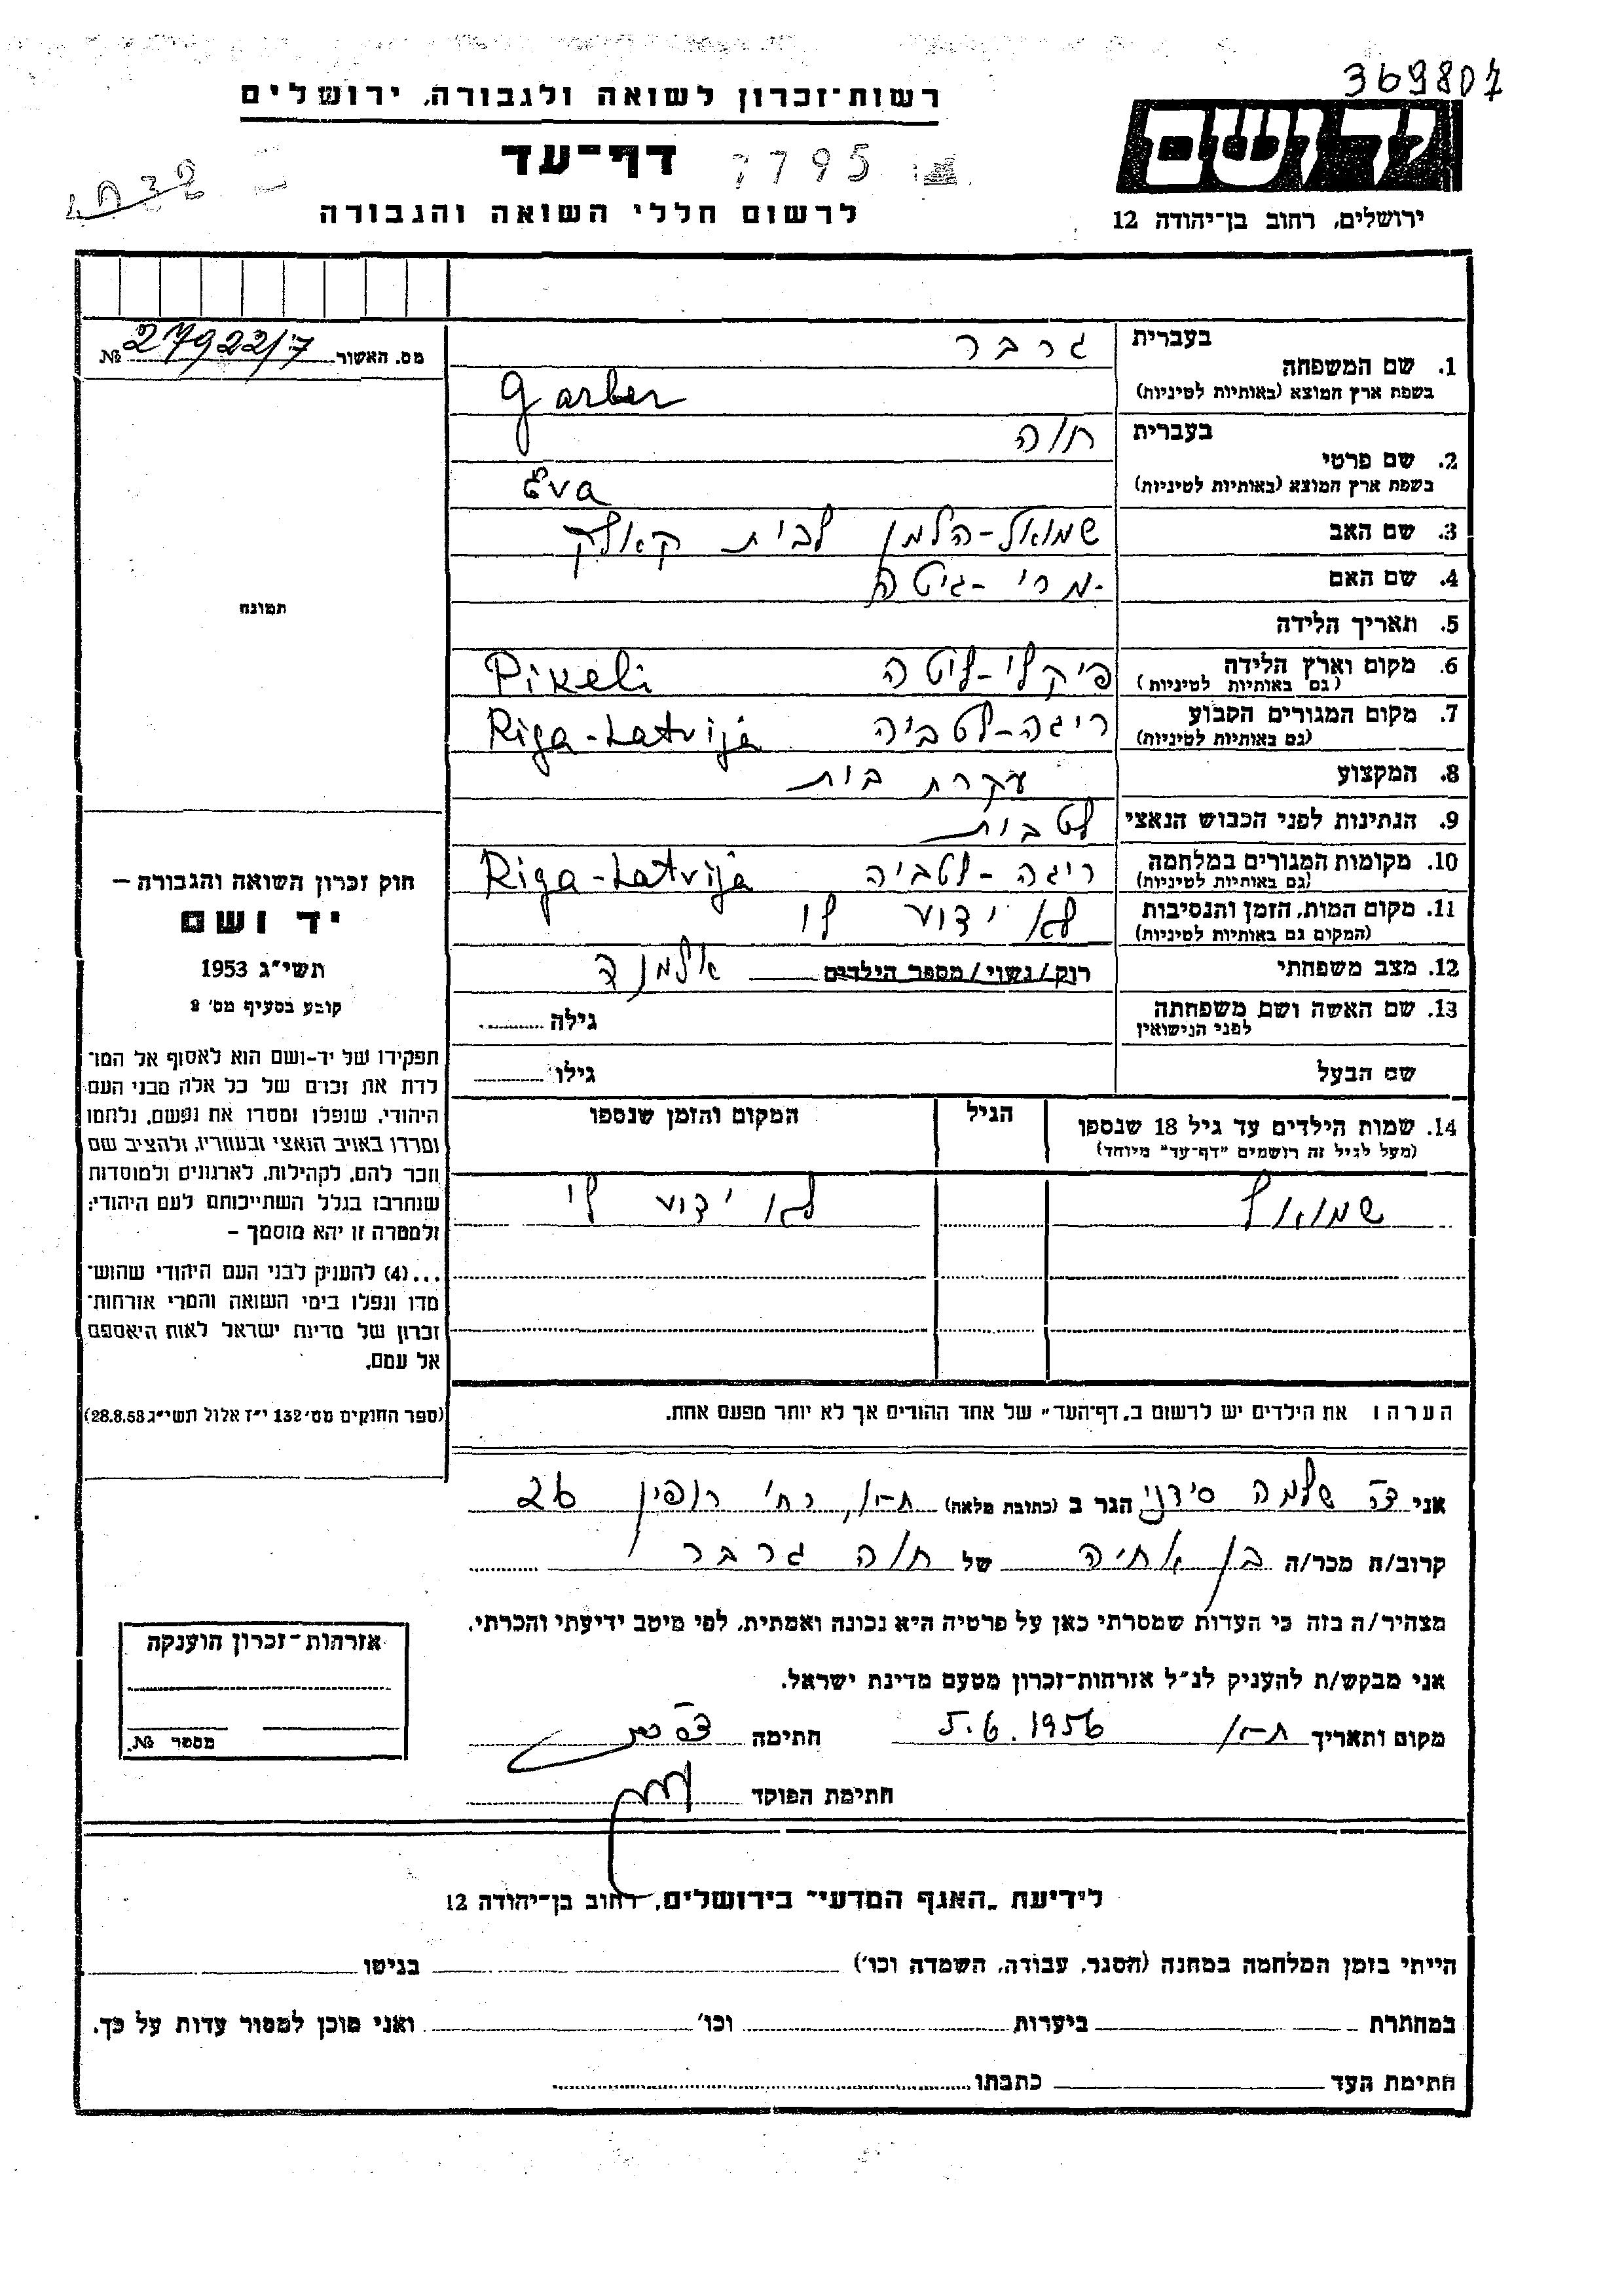 369807
רשות־זכרון לשואה ולגבורה, ירושלים
יד ושם
דף־עד
7795
לרשום חללי השואה והגבורה
ירושלים, רחוב בן־יהודה 12
מס. האשור 27922/7 №
בעברית גרבר
1. שם המשפחה
בשפת ארץ המוצא (באותיות לטיניות) Garber
בעברית חוה
2. שם פרטי
בשפת ארץ המוצא (באותיות לטיניות) Eva
3. שם האב שמואל-הלמן לבית
4. שם האם מרי-גיטה
תמונה
5. תאריך הלידה
6. מקום וארץ הלידה פיקלי-ליטה Pikeli
(גם באותיות לטיניות)
7. מקום המגורים הקבוע ריגה-לטביה Riga-Latvija
(גם באותיות לטיניות)
8. המקצוע עקרת בית
9. הנתינות לפני הכבוש הנאצי לטבית
10. מקומות המגורים במלחמה ריגה-לטביה Riga-Latvija
(גם באותיות לטיניות)
11. מקום המות, הזמן והנסיבות לא ידוע לי
(המקום גם באותיות לטיניות)
12. מצב משפחתי רוק/נשוי/מספר הילדים אלמנה
13. שם האשה ושם משפחתה גילה
לפני הנישואין
שם הבעל גילו
14. שמות הילדים עד גיל 18 שנספו הגיל המקום והזמן שנספו
(מעל לגיל זה רושמים "דף־עד" מיוחד)
שמואל לא ידוע לי
חוק זכרון השואה והגבורה –
יד ושם
תשי״ג 1953
קובע בסעיף מס׳ 2
תפקידו של יד-ושם הוא לאסוף אל המו־
לדת את זכרם של כל אלה מבני העם
היהודי, שנפלו ומסרו את נפשם, נלחמו
ומרדו באויב הנאצי ובעוזריו, ולהציב שם
וזכר להם, לקהילות, לארגונים ולמוסדות
שנחרבו בגלל השתייכותם לעם היהודי;
ולמטרה זו יהא מוסמך –
...(4) להעניק לבני העם היהודי שהוש־
מדו ונפלו בימי השואה והמרי אזרחות־
זכרון של מדינת ישראל לאות היאספם
אל עמם.
(ספר החוקים מס׳ 132 י״ז אלול תשי״ג 28.8.53)
הערה: את הילדים יש לרשום ב„דף־העד״ של אחד ההורים אך לא יותר מפעם אחת.
אני דר שלמה סידני הגר ב (כתובת מלאה) ת-א, רח' רופין 26
קרוב/ת מכר/ה בן אחיה של חוה גרבר
מצהיר/ה בזה כי העדות שמסרתי כאן על פרטיה היא נכונה ואמתית, לפי מיטב ידיעתי והכרתי.
אני מבקש/ת להעניק לנ״ל אזרחות־זכרון מטעם מדינת ישראל.
מקום ותאריך ת-א 5.6.1956 חתימה
חתימת הפוקד
אזרחות־זכרון הוענקה
מספר №.
לידיעת „האגף המדעי״ בירושלים, רחוב בן־יהודה 12
הייתי בזמן המלחמה במחנה (הסגר, עבודה, השמדה וכו׳) בגיטו
במחתרת ביערות וכו׳ ואני מוכן למסור עדות על כך.
חתימת העד כתבתו